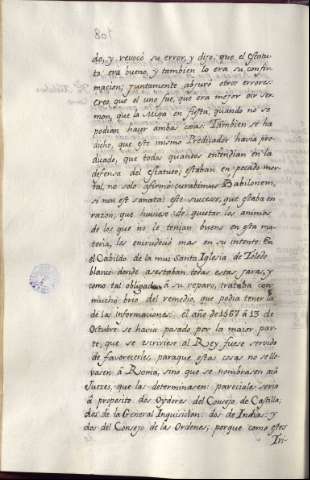 108
do, y revocó su error, y dijo, que el Estatu-
to era bueno y tambien lo era su confir-
macion; juntamente abjuró otros errores:
creo que el uno fue, que era mejor oir Ser-
mon, que la Missa en fiesta, quando no se
podian hacer ambas cosas: Tambien se ha
dicho, que este mismo Predicador havia pre-
dicado, que todos quantos entendian en la
defensa del estatuto, estaban en pecado mor-
tal, no solo afirmó: curabimus Babilonem,
si non est sanata: este successo, que estaba en
razon, que huviese de quietar los animos
de los que no le tenian bueno en esta ma-
teria, les endureció mas en su intento. En
el Cabildo de la mui Santa Iglesia de Toledo
blanco donde asestaban todas estas jaras, y
como tal obligada a su reparo, trataba con
mucho brio del remedio, que podia tener lo
de las Informaciones: el año de 1567 á 13 de
Octubre se havia pasado por la maior par-
te, que se escriviese al Rey fuese servido
de favorecerles, para que estas cosas no se lle-
vasen á Roma, sino que se nombrasen acá
Jueces, que las determinasen: pareciales seria
á proposito dos Oydores del Consejo de Castilla;
dos de la General Inquisicion: dos de Indias: y
dos del Consejo de las Ordenes; porque como estos
Tri-